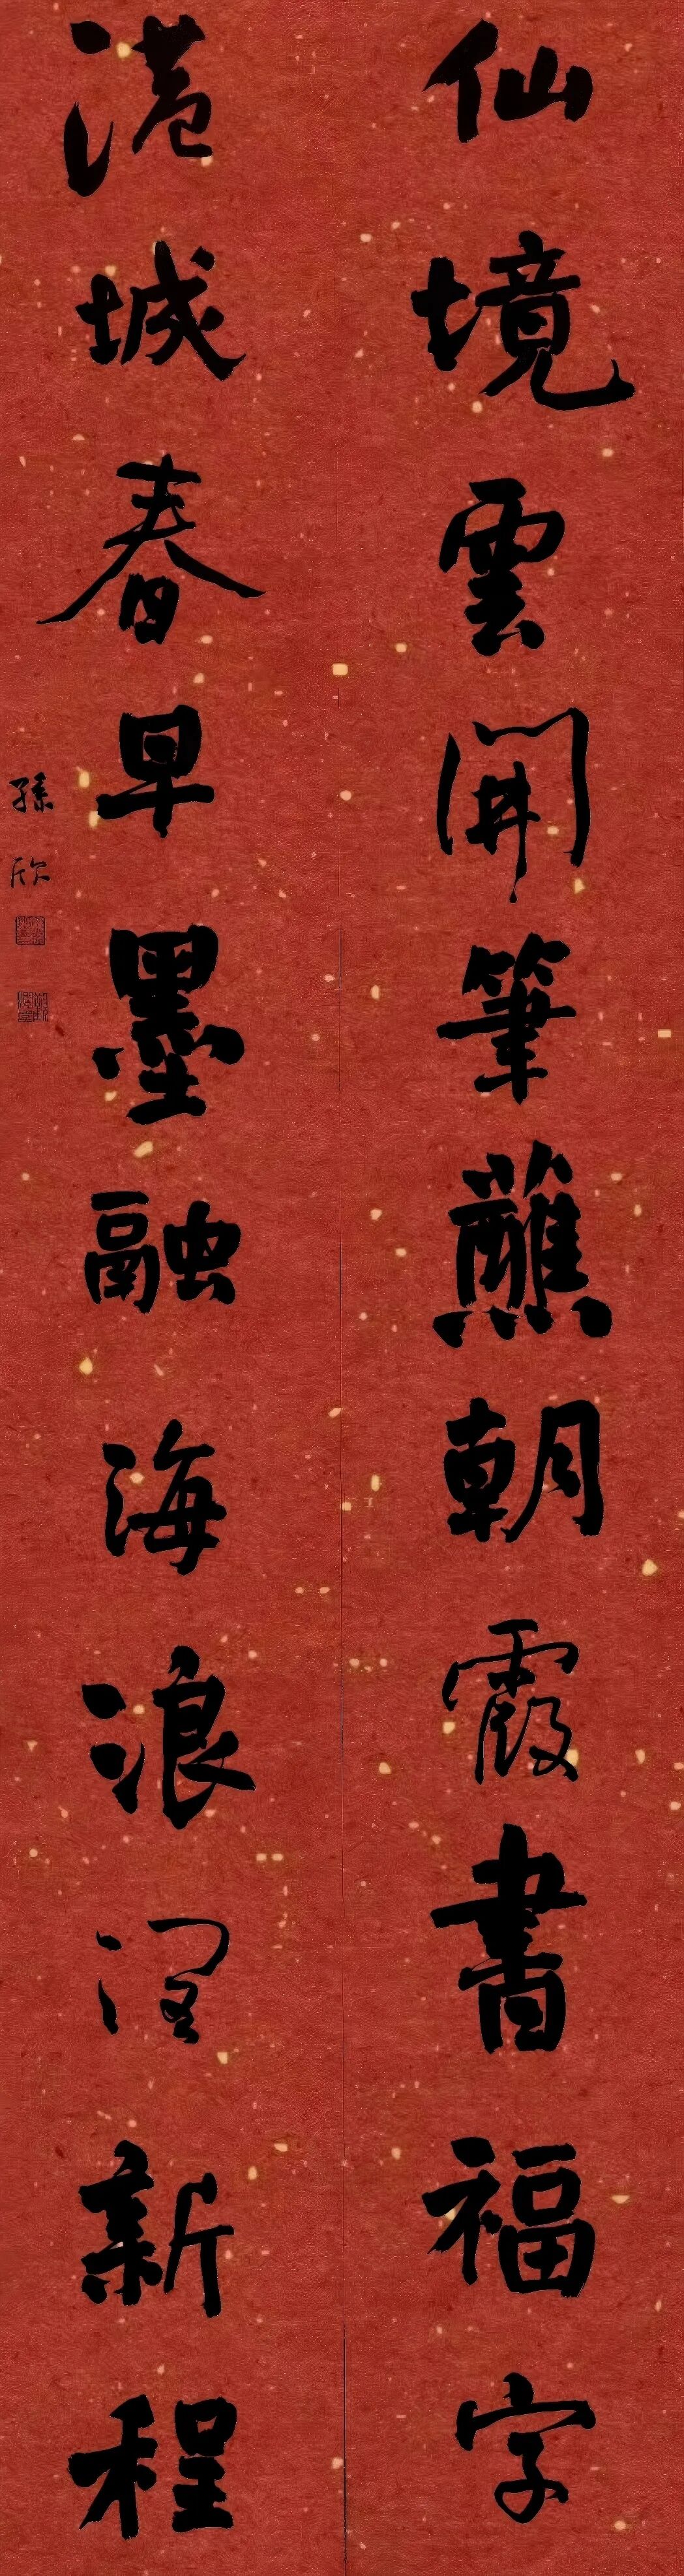 仙境雲開筆蘸朝霞書福字
港城春早墨融海浪潤新程
孫欣